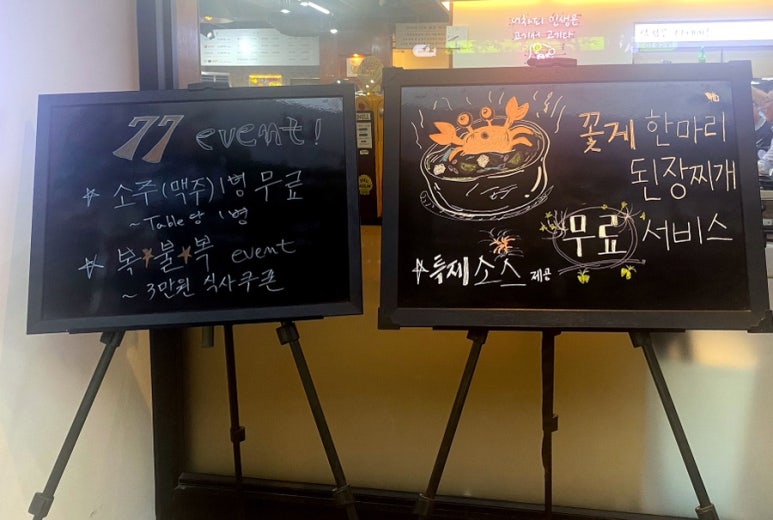 77 event!
☆ 소주(맥주) 1병 무료
~ Table당 1병
☆ 복★불★복 event
~ 3만원 식사쿠폰
꽃게 한마리
된장찌개
무료 서비스
☆ 특제소스 제공